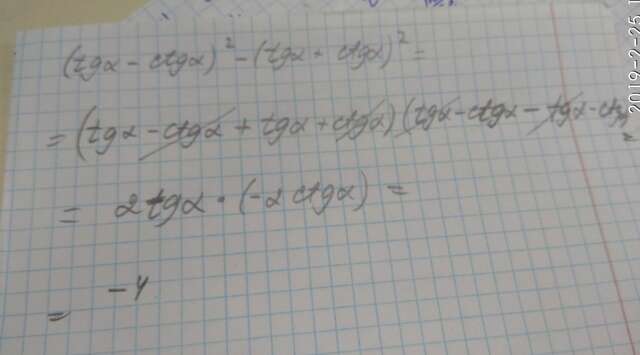 (tgα - ctgα)² - (tgα + ctgα)² =
= (tgα - ctgα + tgα + ctgα)(tgα - ctgα - tgα - ctgα) =
= 2tgα · (-2ctgα) =
= -4
2019-2-25